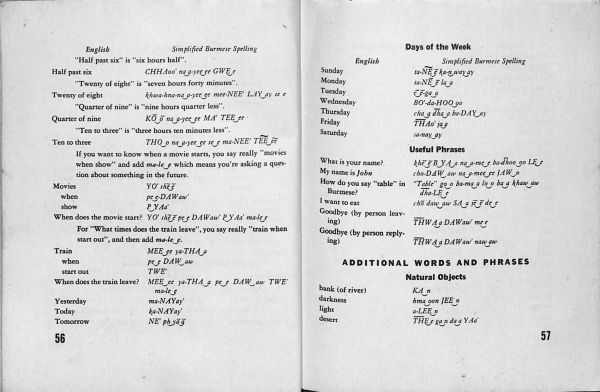 English Simplified Burmese Spelling
"Half past six" is "six hours half".
Half past six CHHAoo' na_a-yee_ee GWE_e
"Twenty of eight" is "seven hours forty minutes".
Twenty of eight na_a-yee_ee mee-NEE' LAY_ay
"Quarter of nine" is "nine hours quarter less".
Quarter of nine na_a-yee_ee MA' TEE_ee
"Ten to three" is "three hours ten minutes less".
Ten to three THO_o na_a-yee_ee
If you want to know when a movie starts, you say really "movies
when show" and add ma-le_e which means you're asking a ques-
tion about something in the future.
Movies YO'
when pe_e-DAWaw'
show PYAa'
When does the movie start? YO' pe_e DAWaw' PYAa' ma-le_e
For "What times does the train leave", you say really "train when
start out", and then add ma-le_e.
Train MEE_ee ya-THA_a
when pe_e DAW_aw
start out TWE'
When does the train leave? MEE_ee ya-THA_a pe_e DAW_aw TWE'
ma-le_e
Yesterday ma-NAYay'
Today ka-NAYay'
Tomorrow NE'
56
Days of the Week
English Simplified Burmese Spelling
Sunday
Monday
Tuesday
Wednesday BO'-da-HOO_oo
Thursday
Friday
Saturday sa-nay_ay
Useful Phrases
What is your name?
My name is John cho-DAW_aw na_a-mee_ee JAW_n
How do you say "table" in "Table"
Burmese?
I want to eat
Goodbye (by person leav-
ing) THWA_a DAWaw' me_e
Goodbye (by person reply-
ing) THWA_a DAWaw' naw_aw
ADDITIONAL WORDS AND PHRASES
Natural Objects
bank (of river) KA_n
darkness hma_oon JEE_n
light a-LEE_n
desert
57